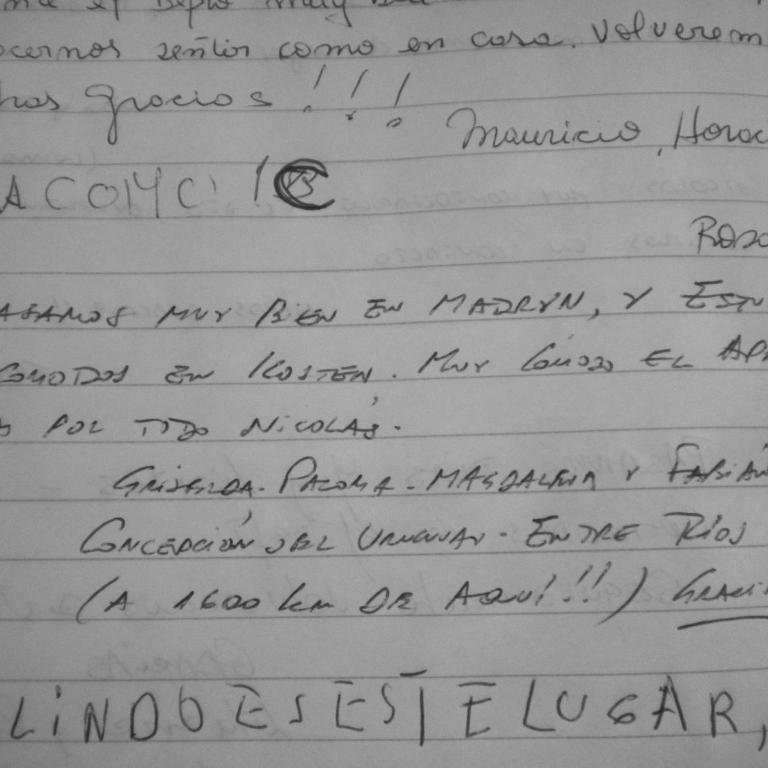 el Depto muy
ocernos sentir como en casa. Volverem
has gracias !!!
Mauricio, Horac
ACOMC' !
Rosa
ASAMOS MUY BIEN EN MADRYN, Y ESTU
COMODOS EN KOSTEN. MUY COMODO EL APA
S POR TODO NICOLÁS.
GRISELDA. PALOMA. MAGDALENA Y FABIÁN
CONCEPCIÓN DEL URUGUAY. ENTRE RÍOS
(A 1600 km DE AQUÍ!!!) GRACI
LINDO ES ESTE LUGAR,